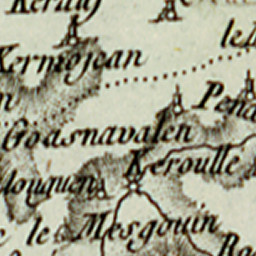 Kermojean
Pena
Goasnavalen
Keroulle
louquen
le Mesgouin